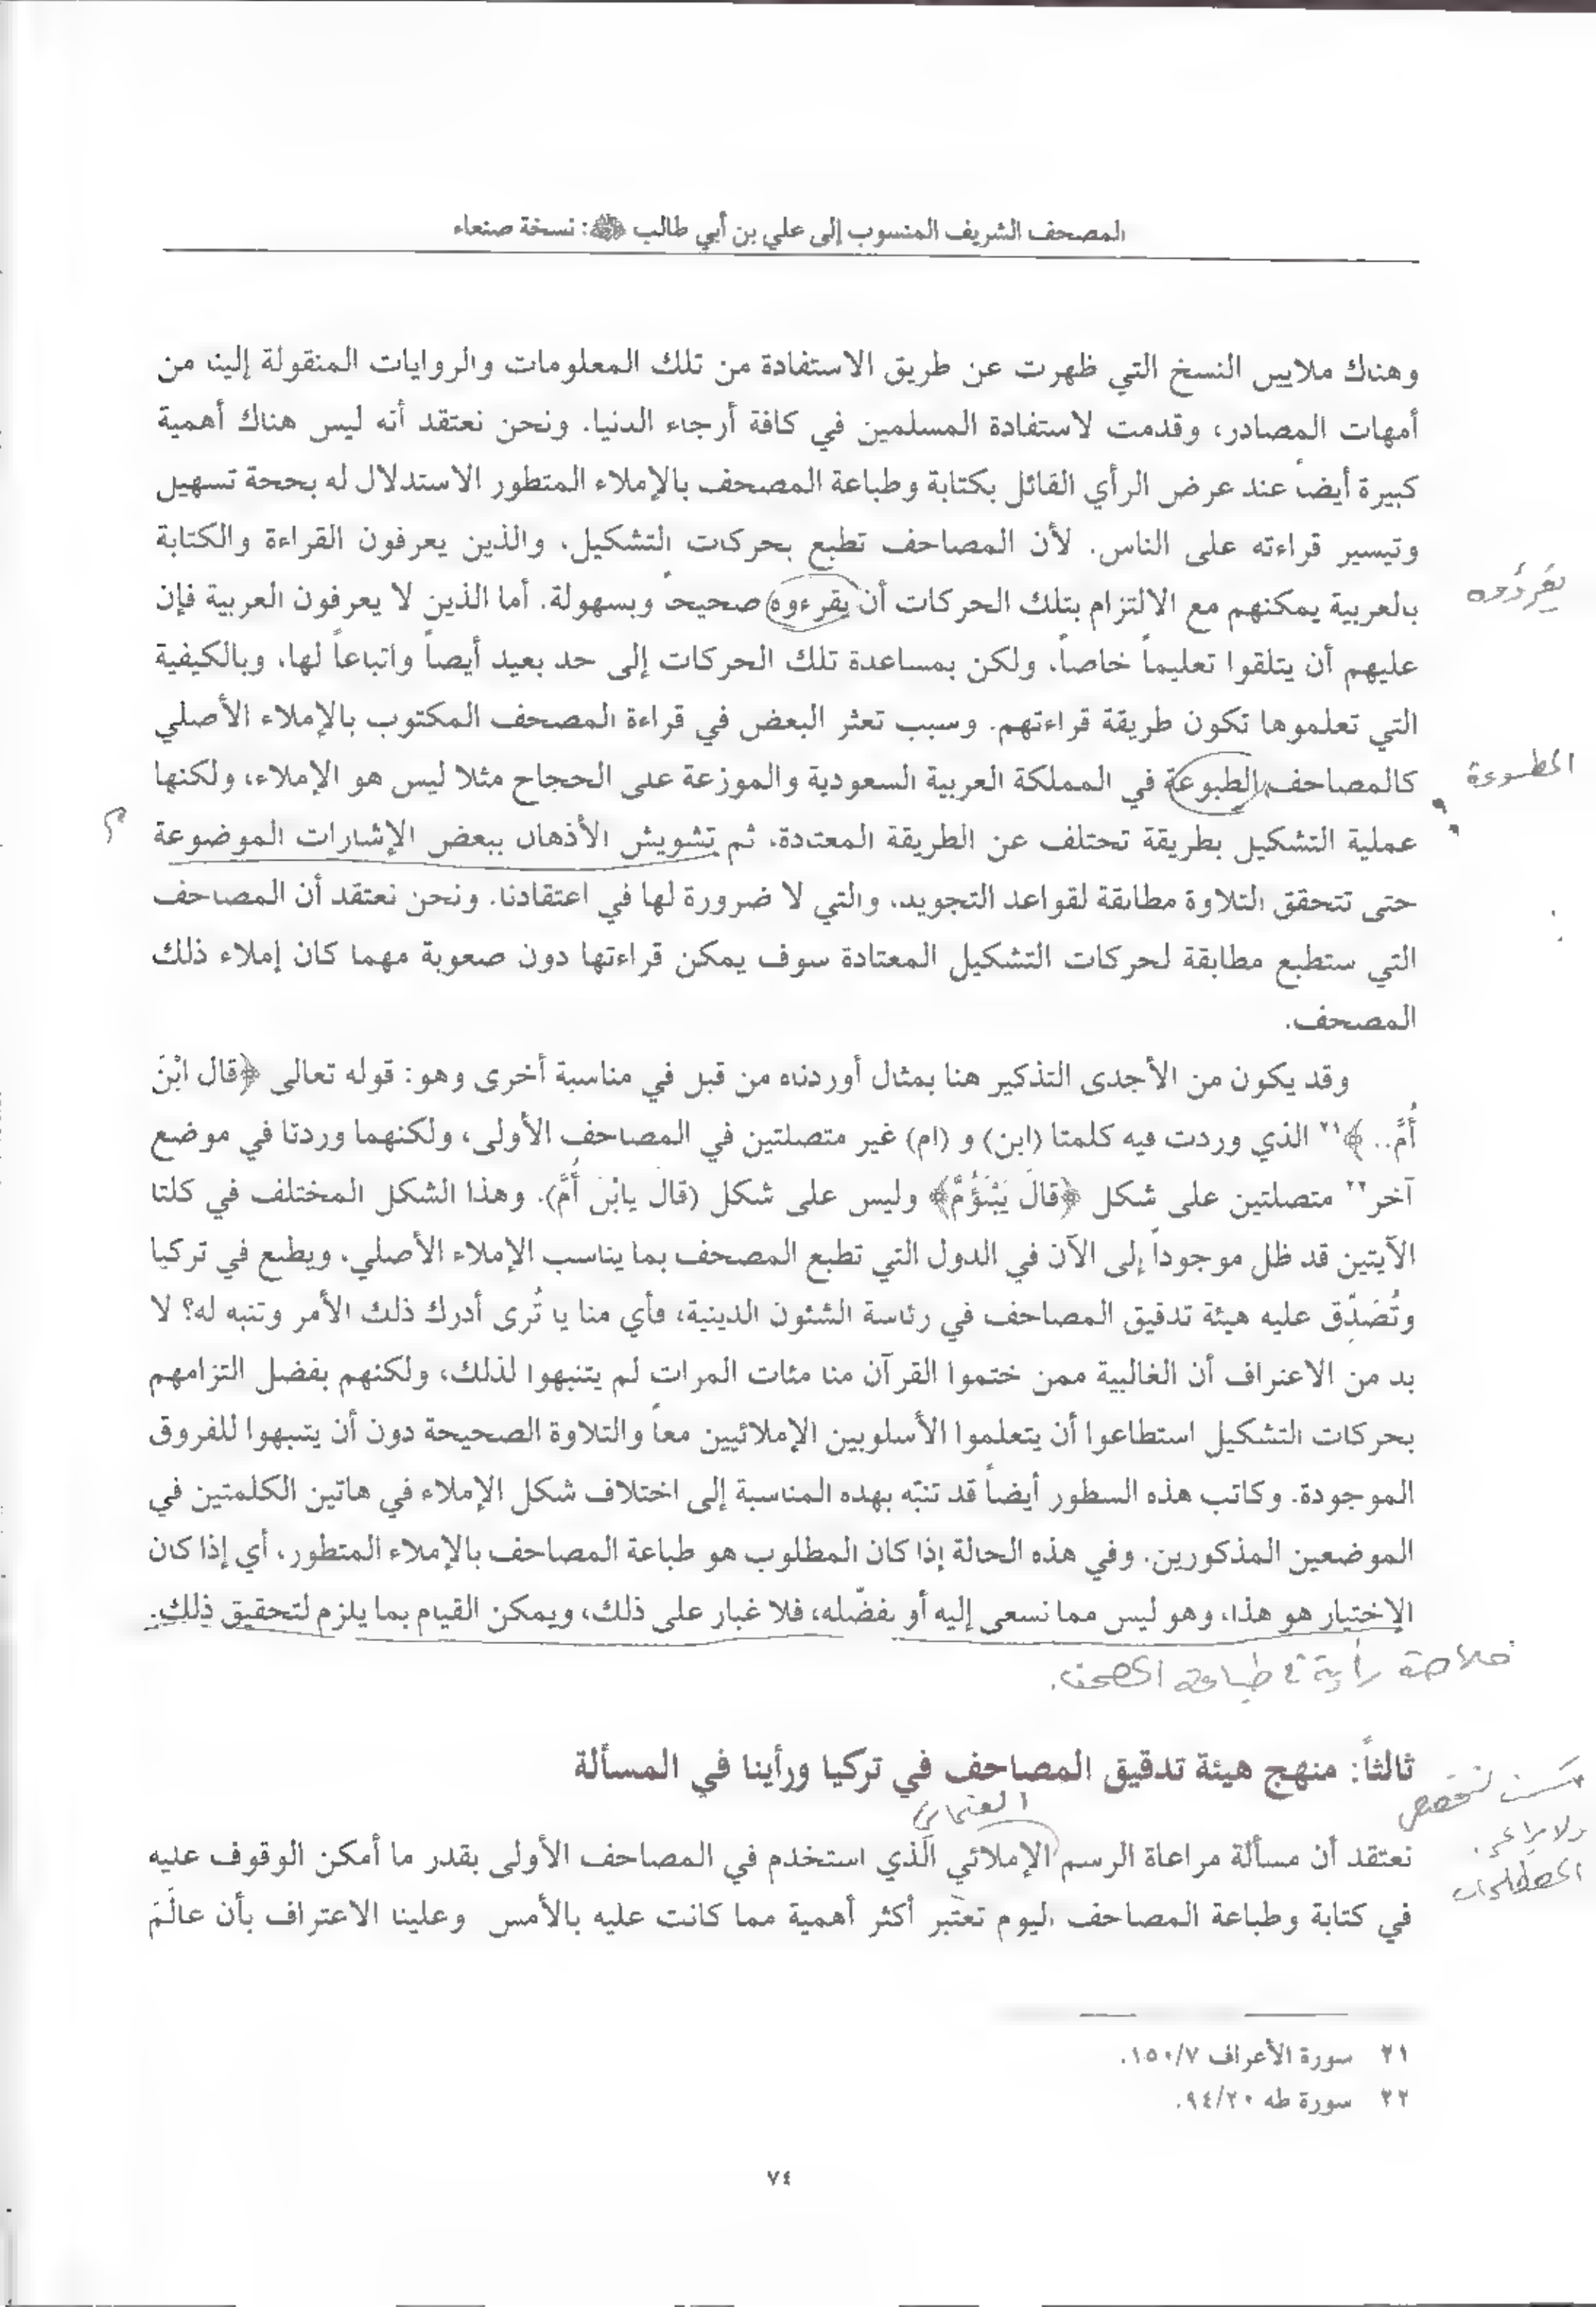 المصحف الشريف المنسوب إلى علي بن أبي طالب ﷺ: نسخة صنعاء
وهناك ملايين النسخ التي ظهرت عن طريق الاستفادة من تلك المعلومات والروايات المنقولة إلينا من
أمهات المصادر، وقدمت لاستفادة المسلمين في كافة أرجاء الدنيا. ونحن نعتقد أنه ليس هناك أهمية
كبيرة أيضاً عند عرض الرأي القائل بكتابة وطباعة المصحف بالإملاء المتطور الاستدلال له بحجة تسهيل
وتيسير قراءته على الناس. لأن المصاحف تطبع بحركات التشكيل، والذين يعرفون القراءة والكتابة
بالعربية يمكنهم مع الالتزام بتلك الحركات أن يقرءوه صحيحاً وبسهولة. أما الذين لا يعرفون العربية فإن
يقرؤوه
عليهم أن يتلقوا تعليماً خاصاً، ولكن بمساعدة تلك الحركات إلى حد بعيد أيضاً واتباعاً لها، وبالكيفية
التي تعلموها تكون طريقة قراءتهم. وسبب تعثر البعض في قراءة المصحف المكتوب بالإملاء الأصلي
كالمصاحف الطبوعة في المملكة العربية السعودية والموزعة على الحجاج مثلا ليس هو الإملاء، ولكنها
المطبوعة
عملية التشكيل بطريقة تختلف عن الطريقة المعتادة، ثم تشويش الأذهان ببعض الإشارات الموضوعة
؟
حتى تتحقق التلاوة مطابقة لقواعد التجويد، والتي لا ضرورة لها في اعتقادنا. ونحن نعتقد أن المصاحف
التي ستطبع مطابقة لحركات التشكيل المعتادة سوف يمكن قراءتها دون صعوبة مهما كان إملاء ذلك
المصحف.
وقد يكون من الأجدى التذكير هنا بمثال أوردناه من قبل في مناسبة أخرى وهو: قوله تعالى ﴿قال ابْنَ
أُمَّ.. ﴾٢١ الذي وردت فيه كلمتا (ابن) و (ام) غير متصلتين في المصاحف الأولى، ولكنهما وردتا في موضع
آخر٢٢ متصلتين على شكل ﴿قالَ يَبْنَؤُمَّ﴾ وليس على شكل (قالَ يابْنَ أُمَّ). وهذا الشكل المختلف في كلتا
الآيتين قد ظل موجوداً إلى الآن في الدول التي تطبع المصحف بما يناسب الإملاء الأصلي، ويطبع في تركيا
وتُصَدِّق عليه هيئة تدقيق المصاحف في رئاسة الشئون الدينية، فأي منا يا تُرى أدرك ذلك الأمر وتنبه له؟ لا
بد من الاعتراف أن الغالبية ممن ختموا القرآن منا مئات المرات لم يتنبهوا لذلك، ولكنهم بفضل التزامهم
بحركات التشكيل استطاعوا أن يتعلموا الأسلوبين الإملائيين معاً والتلاوة الصحيحة دون أن يتنبهوا للفروق
الموجودة. وكاتب هذه السطور أيضاً قد تنبّه بهذه المناسبة إلى اختلاف شكل الإملاء في هاتين الكلمتين في
الموضعين المذكورين. وفي هذه الحالة إذا كان المطلوب هو طباعة المصاحف بالإملاء المتطور، أي إذا كان
الإختيار هو هذا، وهو ليس مما نسعى إليه أو نفضّله، فلا غبار على ذلك، ويمكن القيام بما يلزم لتحقيق ذلك.
خلاصة رأيه في طباعة المصحف.
ثالثاً: منهج هيئة تدقيق المصاحف في تركيا ورأينا في المسألة
العثماني
ولا يراعي
المصطلحات
نعتقد أن مسألة مراعاة الرسم الإملائي الّذي استخدم في المصاحف الأولى بقدر ما أمكن الوقوف عليه
في كتابة وطباعة المصاحف اليوم تعتبر أكثر أهمية مما كانت عليه بالأمس وعلينا الاعتراف بأن عالَمَ
٢١ سورة الأعراف ١٥٠/٧.
٢٢ سورة طه ٩٤/٢٠.
٧٤